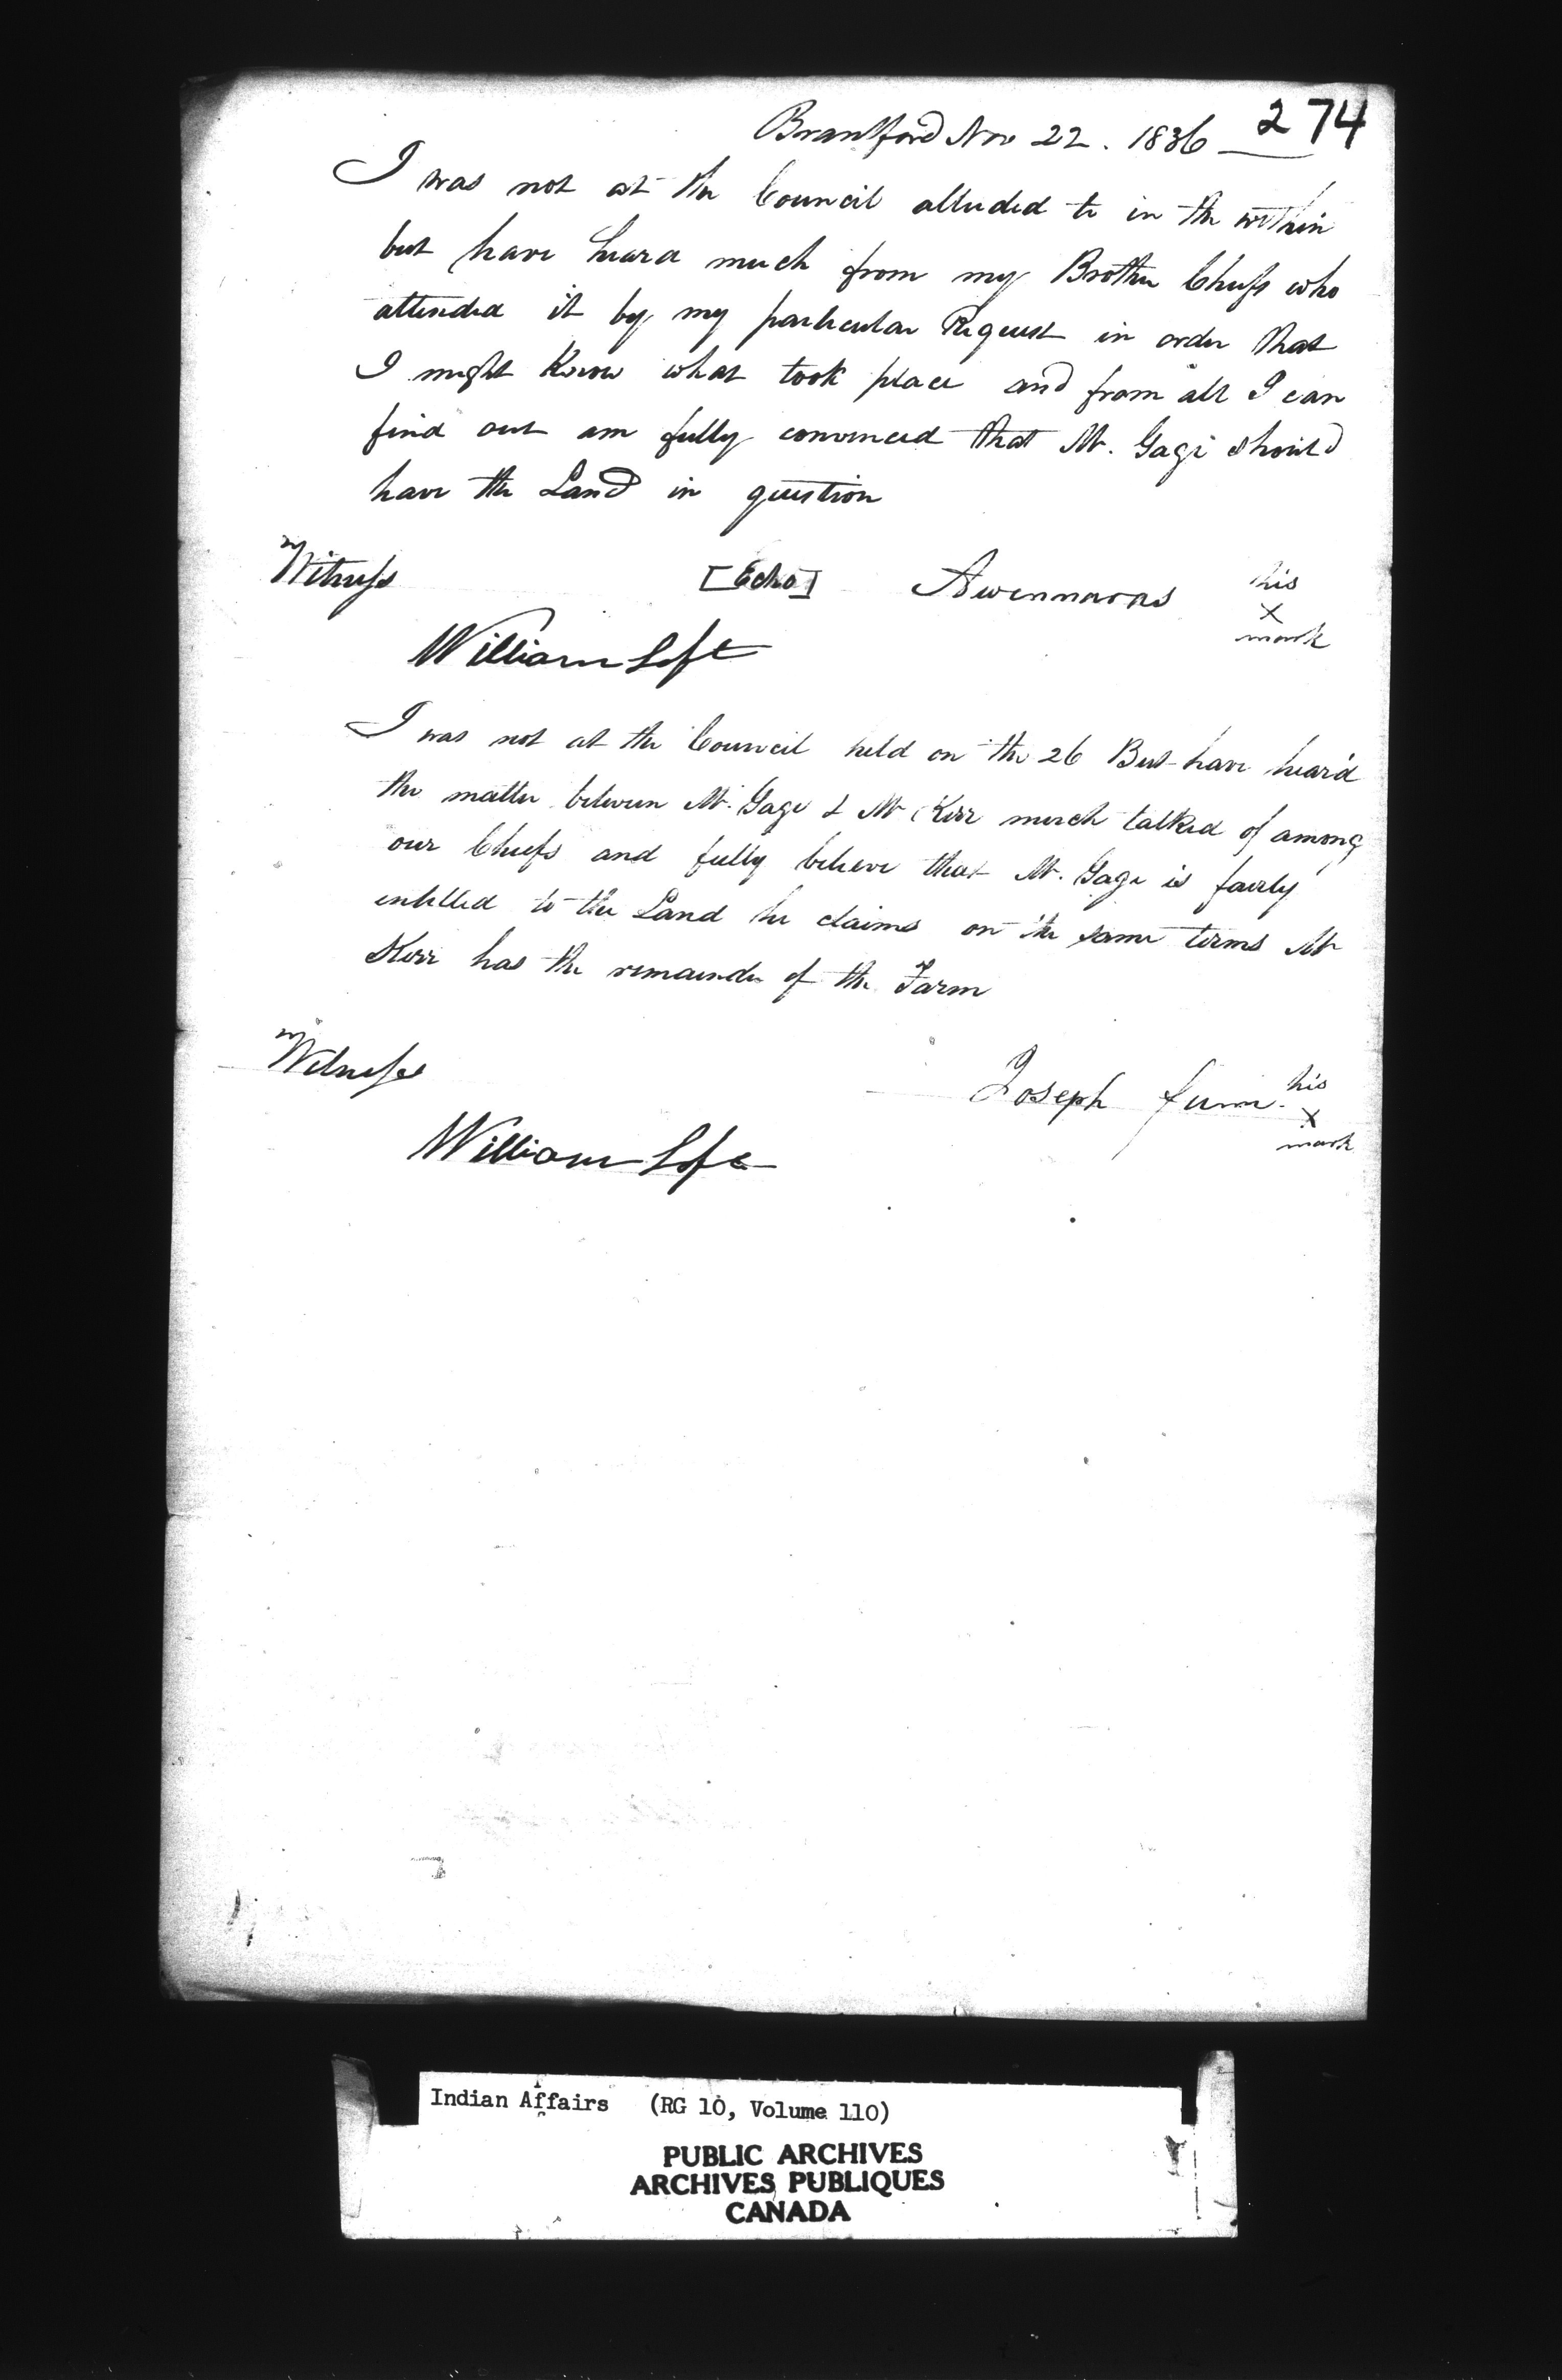 274
Brantford Nov 22. 1836
I was not at the Council alluded to in the within
but have heard much from my Brother Chiefs who
attended it by my particular Request in order that
I might Know what took place and from all I can
find out am fully convinced that Mr. Gage should
have the Land in question
Witness [Echo] Awennaras his
x
mark
William Loft
I was not at the Council held on the 26 But have heard
the matter between Mr. Gage & Mr Kerr much talked of among
our Chiefs and fully believe that Mr. Gage is fairly
entitled to the Land he claims on the same terms Mr
Kerr has the remainder of the Farm
Witness
Joseph his
x
mark
William Loft
Indian Affairs (RG 10, Volume 110)
PUBLIC ARCHIVES
ARCHIVES PUBLIQUES
CANADA